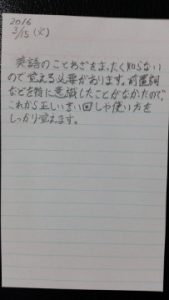 2016
3/15 (火)
英語のことわざをまったく知らない
ので覚える必要があります。前置詞
などを特に意識したことがなかったので、
これから正しい言い回しや使い方を
しっかり覚えます。